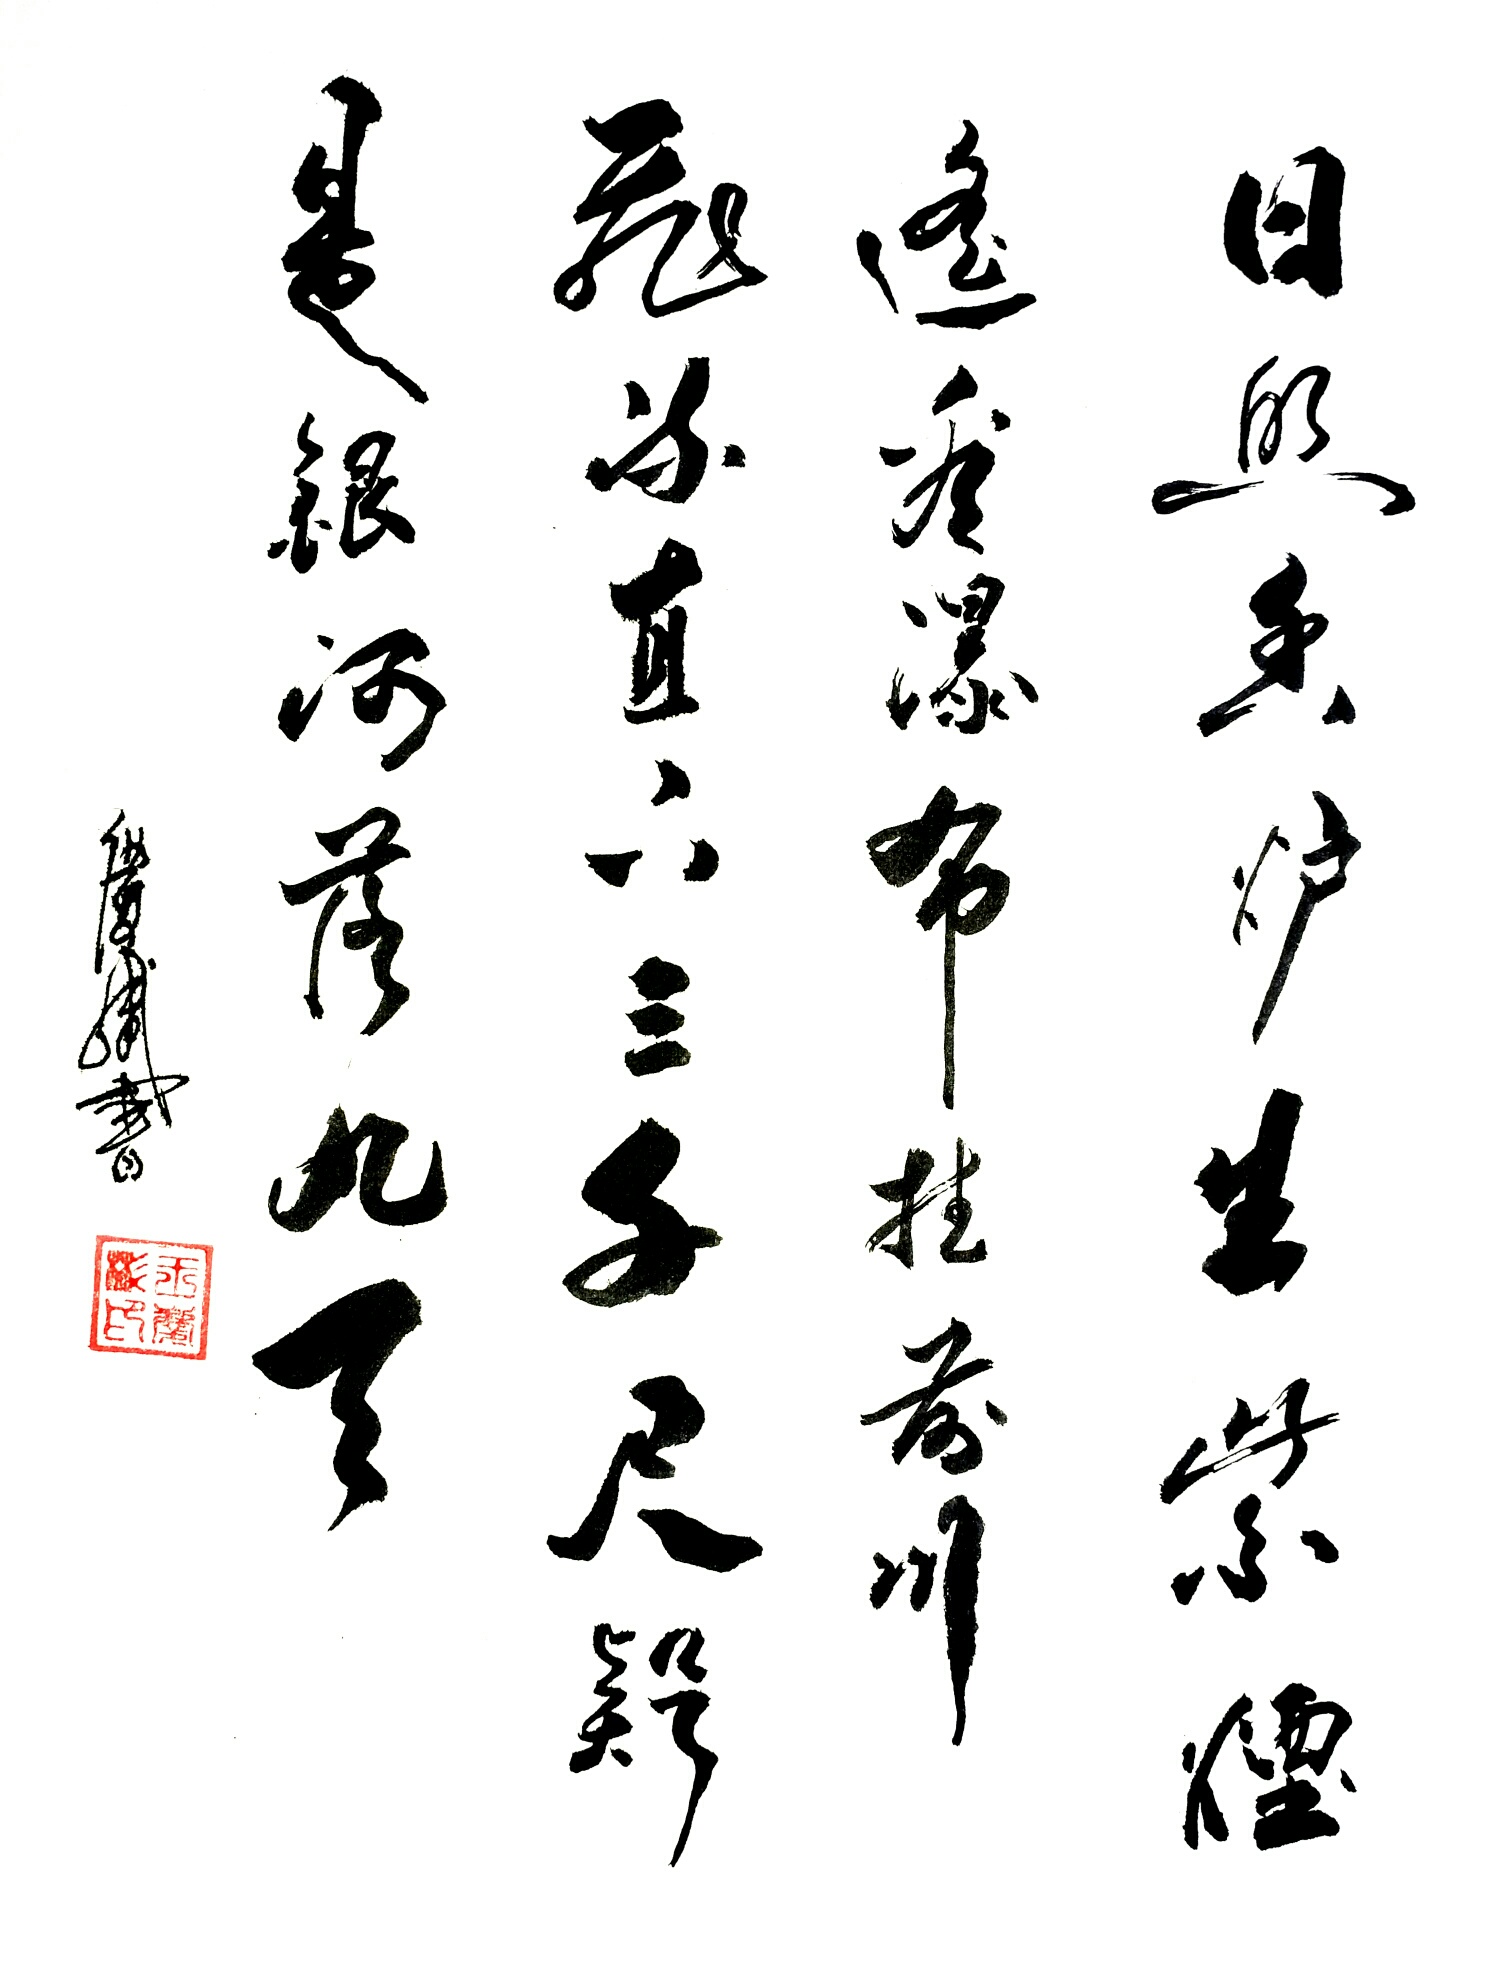 日照香炉生紫煙
遙看瀑布挂前川
飛流直下三千尺疑
是銀河落九天
書